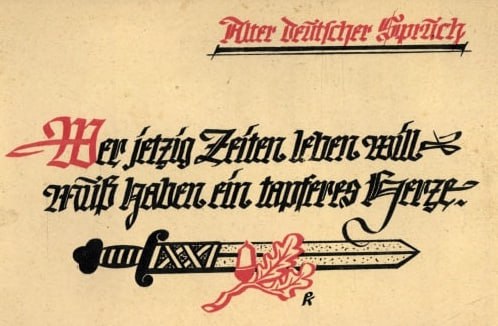 Alter deutscher Spruch
Wer jetzig Zeiten leben will
muß haben ein tapferes Herze.